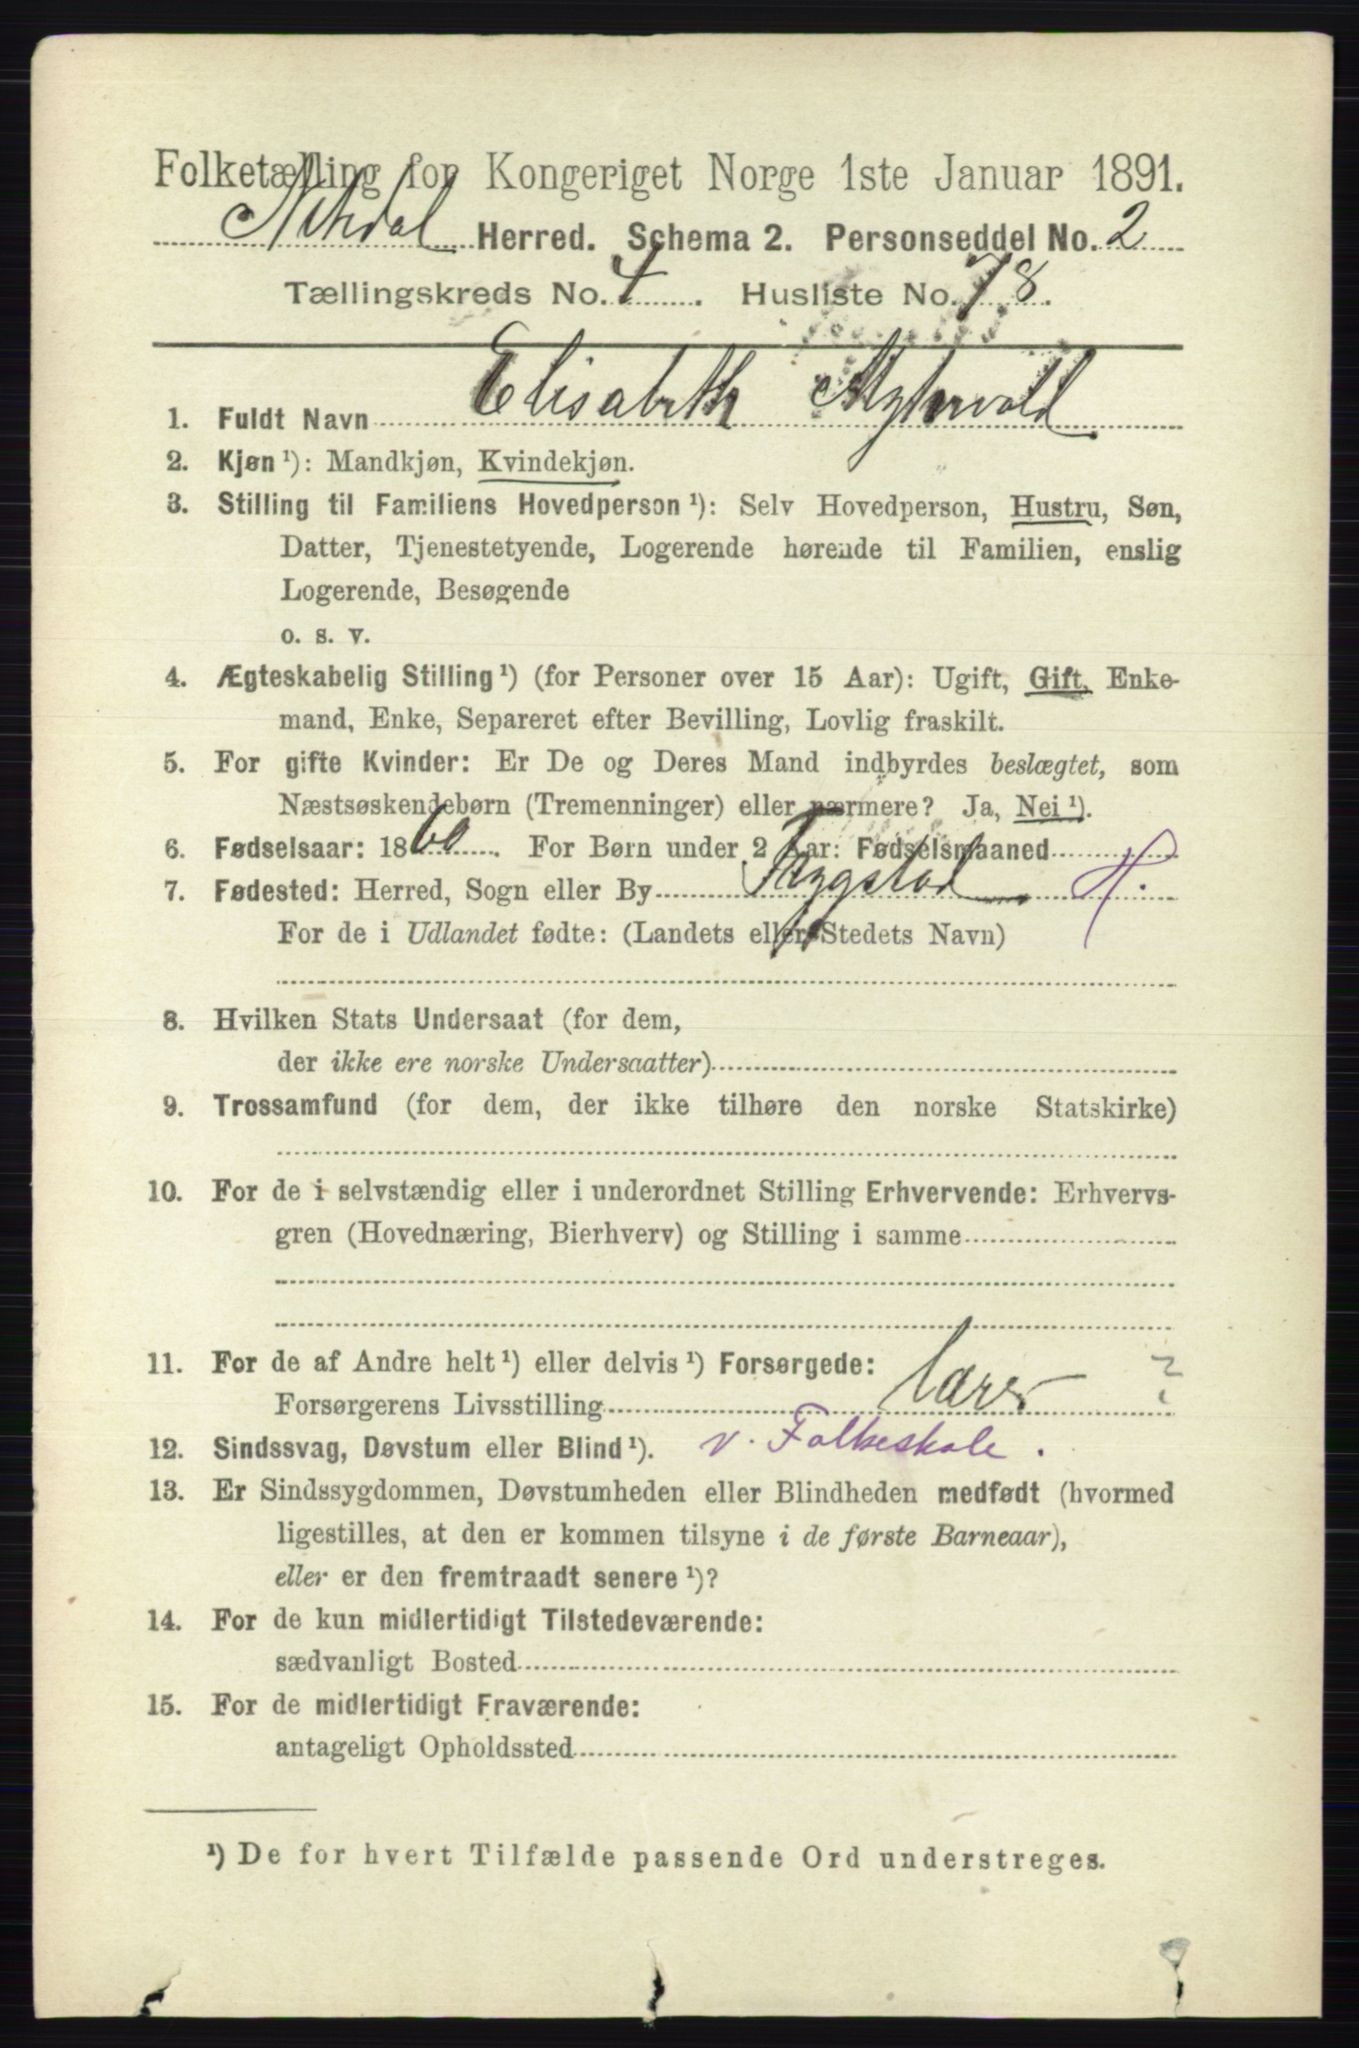 Folketælling for Kongeriget Norge 1ste Januar 1891.
Nitedal Herred. Schema 2. Personseddel No. 2
Tællingskreds No. 4. Husliste No. 78.
1. Fuldt Navn Elisabeth Myhrvold
2. Kjøn ¹): Mandkjøn, Kvindekjøn.
3. Stilling til Familiens Hovedperson ¹): Selv Hovedperson, Hustru, Søn,
Datter, Tjenestetyende, Logerende hørende til Familien, enslig
Logerende, Besøgende
o. s. v.
4. Ægteskabelig Stilling ¹) (for Personer over 15 Aar): Ugift, Gift, Enke-
mand, Enke, Separeret efter Bevilling, Lovlig fraskilt.
5. For gifte Kvinder: Er De og Deres Mand indbyrdes beslægtet, som
Næstsøskendebørn (Tremenninger) eller nærmere? Ja, Nei ¹).
6. Fødselsaar: 1860. For Børn under 2 Aar: Fødselsmaaned
7. Fødested: Herred, Sogn eller By Trygstad H.
For de i Udlandet fødte: (Landets eller Stedets Navn)
8. Hvilken Stats Undersaat (for dem,
der ikke ere norske Undersaatter)
9. Trossamfund (for dem, der ikke tilhøre den norske Statskirke)
10. For de i selvstændig eller i underordnet Stilling Erhvervende: Erhvervs-
gren (Hovednæring, Bierhverv) og Stilling i samme
11. For de af Andre helt ¹) eller delvis ¹) Forsørgede:
Forsørgerens Livsstilling Lærer ?
12. Sindssvag, Døvstum eller Blind ¹). v. Folkeskole.
13. Er Sindssygdommen, Døvstumheden eller Blindheden medfødt (hvormed
ligestilles, at den er kommen tilsyne i de første Barneaar),
eller er den fremtraadt senere ¹)?
14. For de kun midlertidigt Tilstedeværende:
sædvanligt Bosted
15. For de midlertidigt Fraværende:
antageligt Opholdssted
¹) De for hvert Tilfælde passende Ord understreges.